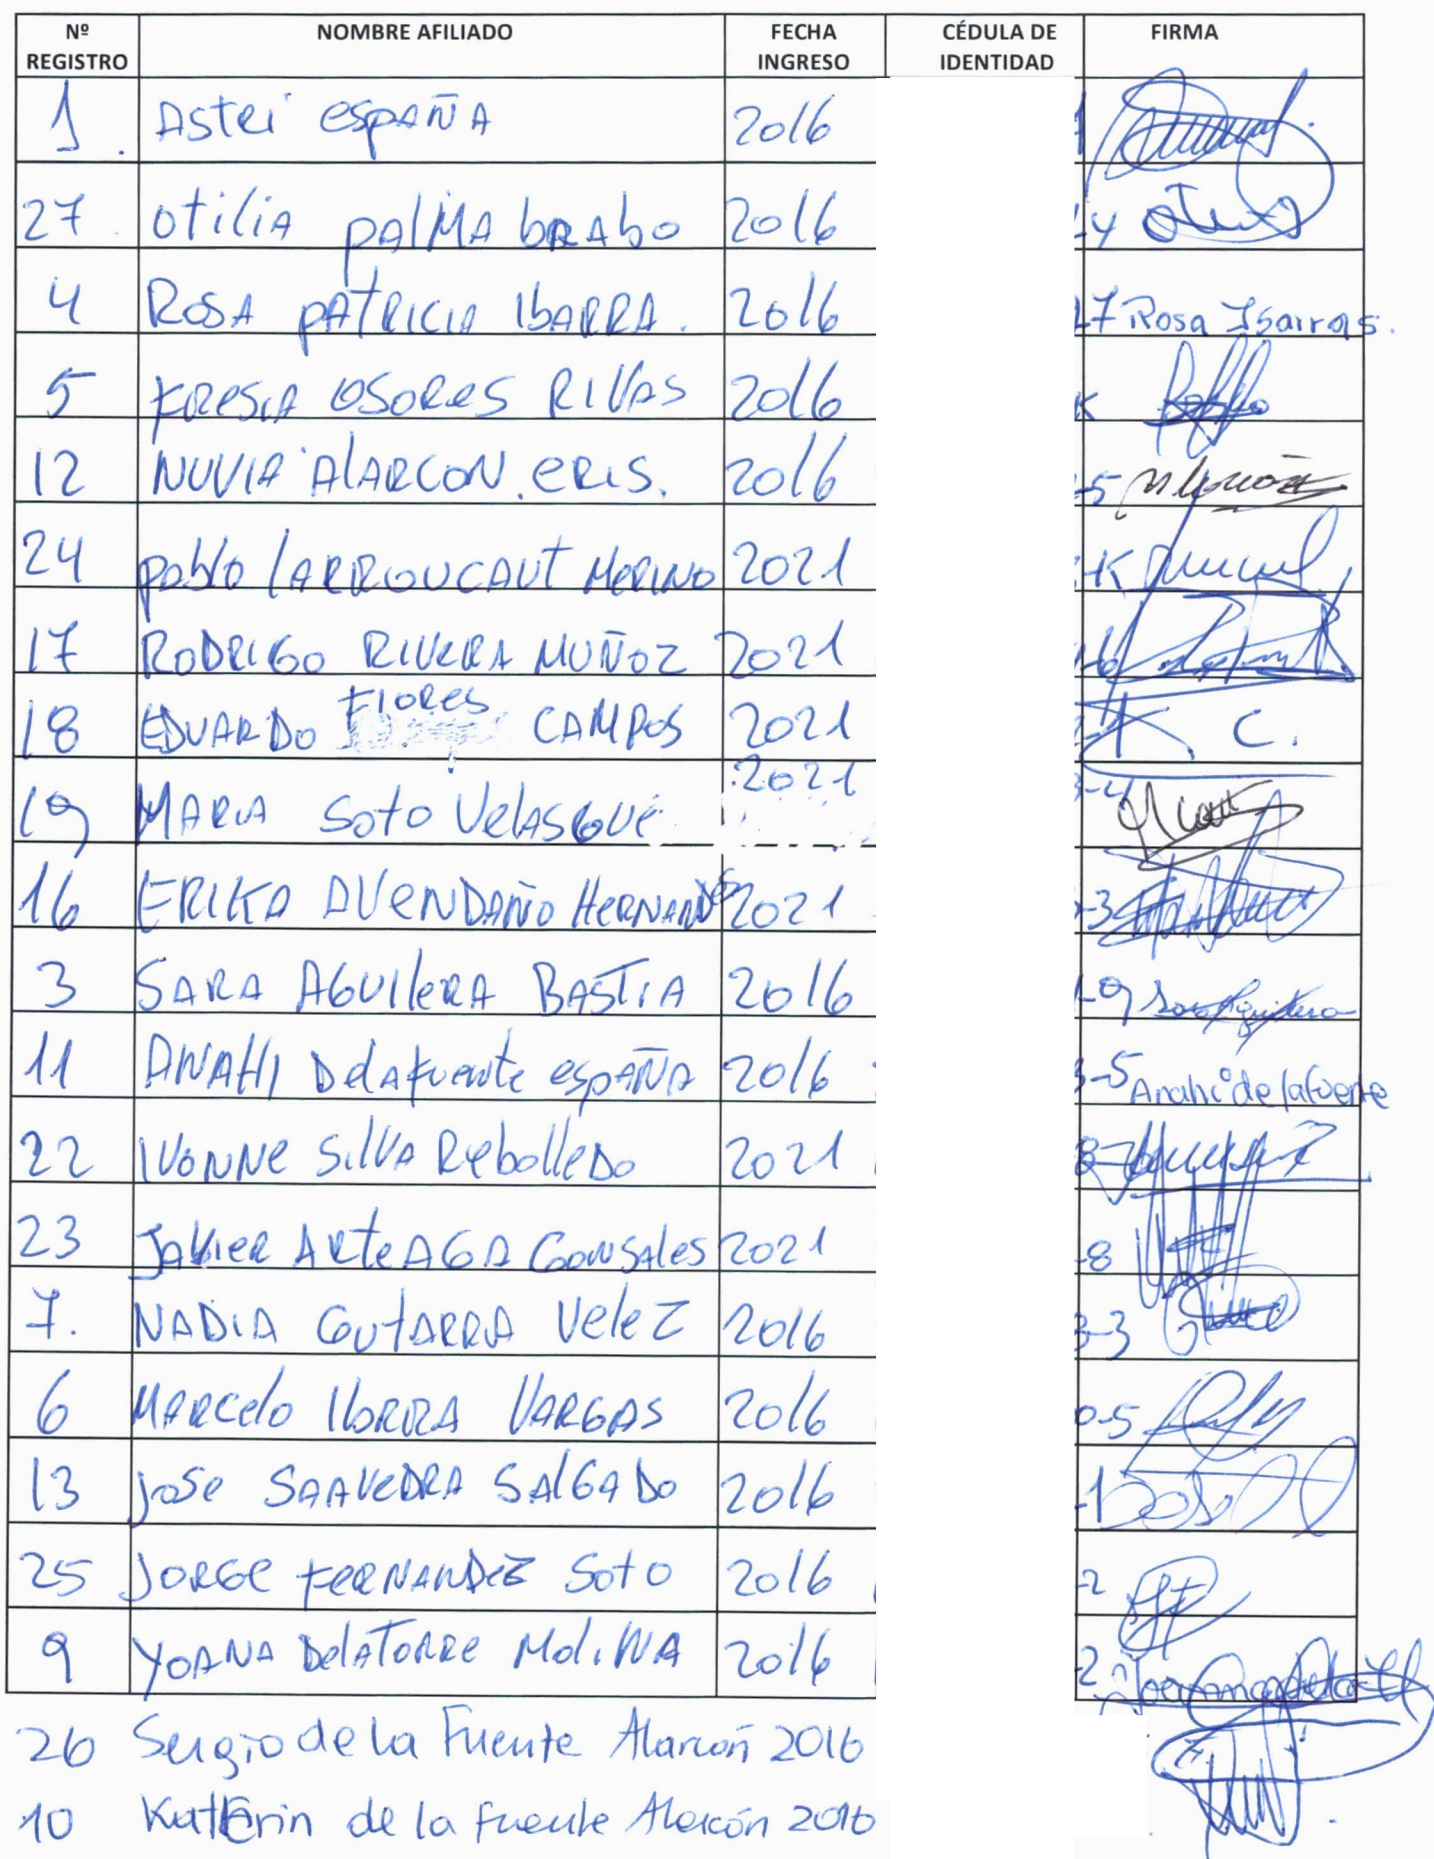 Nº REGISTRO NOMBRE AFILIADO FECHA INGRESO CÉDULA DE IDENTIDAD FIRMA
1 Astri españa 2016
27 Otilia palma brabo 2016 -4
4 Rosa patricia Ibarra. 2016 27 Rosa Ibarra s.
5 Kresia Osores Rivas 2016 K
12 Nuvia Alarcon. eris. 2016 -5
24 pablo larroucaut Merino 2021 -K
17 Rodrigo Rivera Muñoz 2021 -6
18 Eduardo Flores Campos 2021 C.
19 Maria Soto Velasque 2021 3-4
16 Erika Avendaño Hernandes 2021 -3
3 Sara Aguilera Bastia 2016 -9 Sara Aguilera
11 Anahi Delafuente españa 2016 -5 Anahi de la fuente
22 Ivonne Silva Rebolledo 2021 8-7
23 Javier Arteaga Gonsales 2021 -8
7. Nadia Gutarra Velez 2016 3-3
6 Marcelo Iborra Vargas 2016 0-5
13 jose Saavedra Salgado 2016 -1
25 Jorge Fernandez Soto 2016 -2
9 Yoana Delatorre Molina 2016 -2
26 Sergio de la Fuente Alarcón 2016
10 Katherin de la Fuente Alarcón 2016